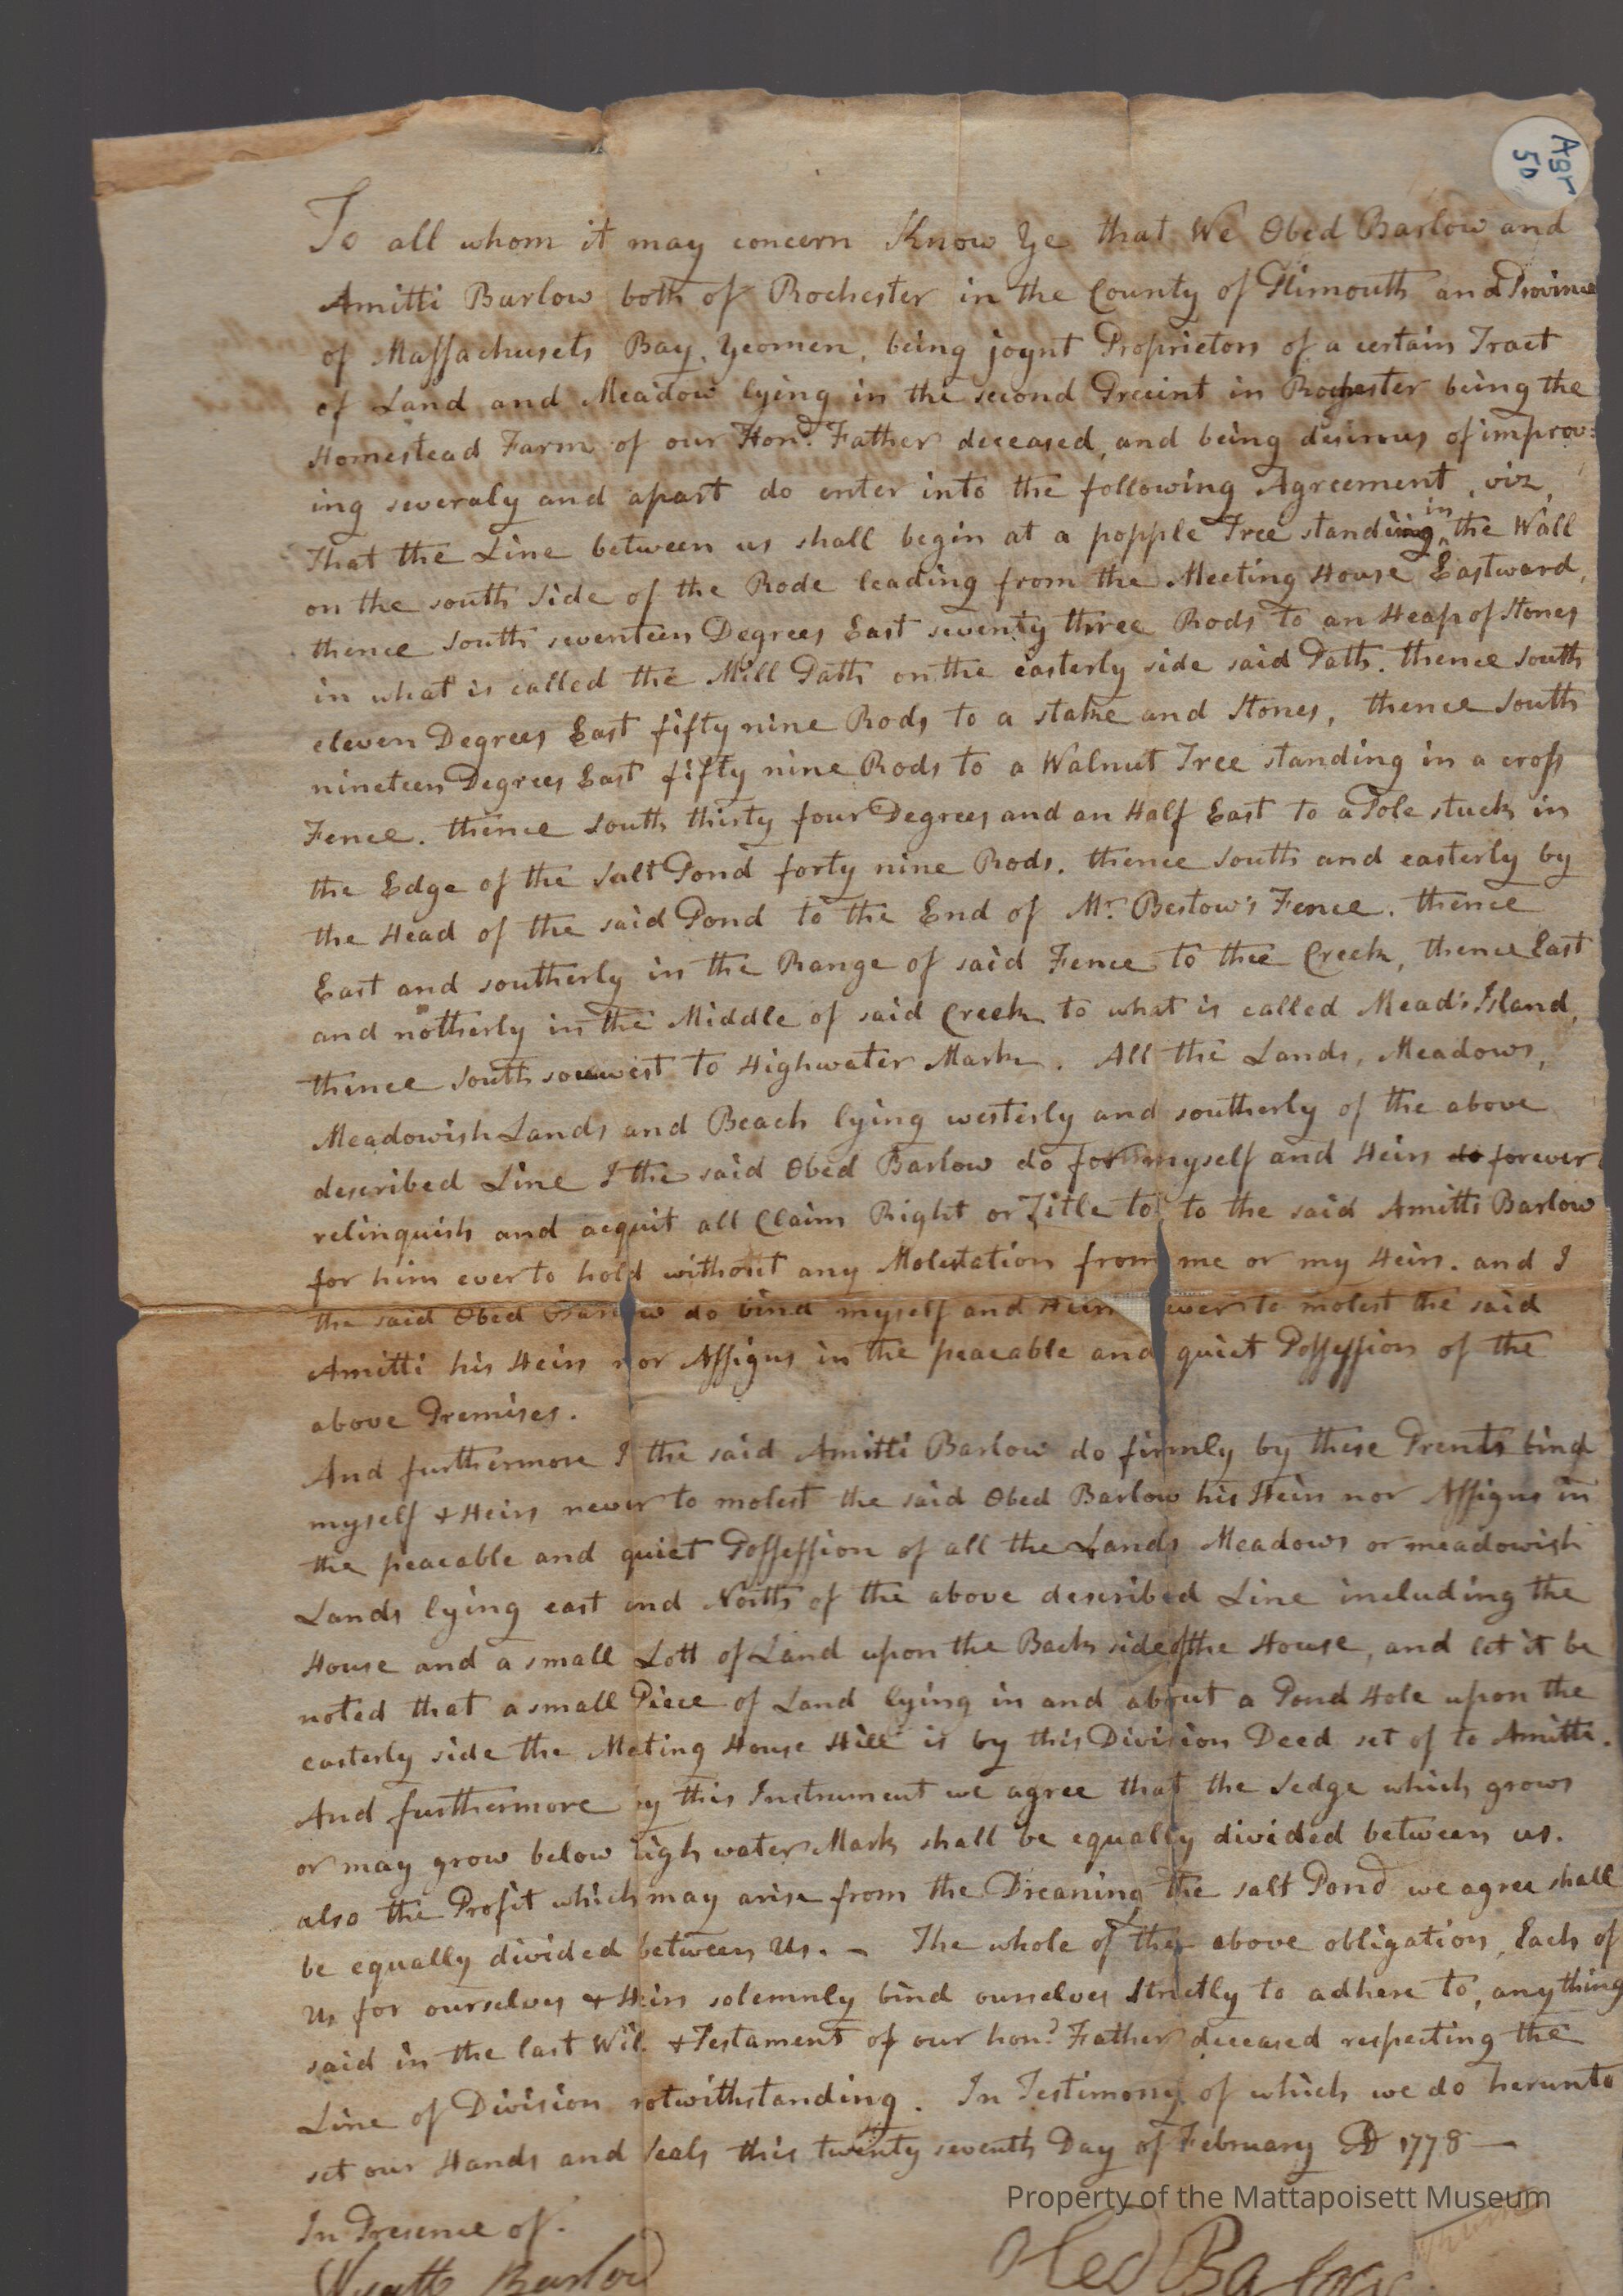 Agr
50
To all whom it may concern Know Ye that We Obed Barlow and
Amitti Barlow both of Rochester in the County of Plimouth and Province
of Massachusets Bay, Yeomen, being joynt Proprietors of a certain Tract
of Land and Meadow lying in the second Precint in Rochester being the
Homestead Farm of our Hond. Father deceased, and being desirous of improv=
ing severaly and apart do enter into the following Agreement, viz,
That the Line between us shall begin at a popple Tree standing in the Wall
on the south Side of the Rode leading from the Meeting House Eastward,
thence South seventeen Degrees East seventy three Rods to an Heap of Stones
in what is called the Mill Path on the easterly side said Path. thence South
eleven Degrees East fifty nine Rods to a stake and Stones, thence South
nineteen Degrees East fifty nine Rods to a Walnut Tree standing in a cross
Fence. thence South thirty four Degrees and an Half East to a Pole stuck in
the Edge of the Salt Pond forty nine Rods. thence South and easterly by
the Head of the said Pond to the End of Mr. Bestow's Fence. thence
East and southerly in the Range of said Fence to the Creek, thence East
and notherly in the Middle of said Creek to what is called Mead's Island,
thence South souwest to Highwater Mark. All the Lands, Meadows,
Meadowish Lands and Beach lying westerly and southerly of the above
described Line I the said Obed Barlow do for myself and Heirs do forever
relinquish and acquit all Claim Right or Title to to the said Amitti Barlow
for him ever to hold without any Molestation from me or my Heirs. and I
the said Obed Barlow do bind myself and Heirs ever to molest the said
Amitti his Heirs nor Assigns in the peacable and quiet Possession of the
above Premises.
And furthermore I the said Amitti Barlow do firmly by these Prents bind
myself & Heirs never to molest the said Obed Barlow his Heirs nor Assigns in
the peacable and quiet Possession of all the Lands Meadows or meadowish
Lands lying east and North of the above described Line including the
House and a small Lott of Land upon the Back side of the House, and let it be
noted that a small Piece of Land lying in and about a Pond Hole upon the
easterly side the Meting House Hill is by this Division Deed set of to Amitti.
And furthermore by this Instrument we agree that the Sedge which grows
or may grow below high water Mark shall be equally divided between us.
also the Profit which may arise from the Dreaning the salt Pond we agree shall
be equally divided between Us. - The whole of the above obligation, Each of
Us for ourselves & Heirs solemnly bind ourselves Strictly to adhere to, any thing
said in the last Wil. & Testament of our hond. Father deceased respecting the
Line of Division notwithstanding. In Testimony of which we do herunto
set our Hands and Seals this twenty seventh Day of February AD 1778 —
In Presence of.
Property of the Mattapoisett Museum
Wyatt Barlow
Obed Barlow